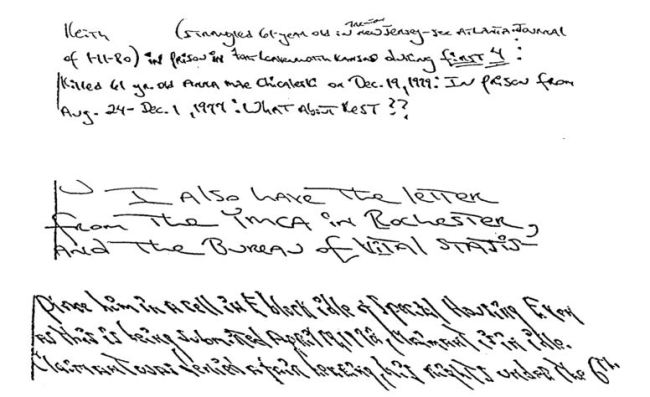 Keith (strangled 61-year old in New Jersey-see Atlanta Journal
of 1-11-80) in prison in Fort Leavenworth Kansas during first 4 :
Killed 61 yr. old Anna Mae on Dec. 19, 1979: In prison from
Aug. 24- Dec. 1, : What About Rest ??
I Also have the letter
from The YMCA in Rochester,
And The Bureau of Vital Statis-
him in a cell in E block idle of Special Housing
as this is being submitted April , Claimant is in idle.
Claimant was denied a fair hearing, his rights under the 6th